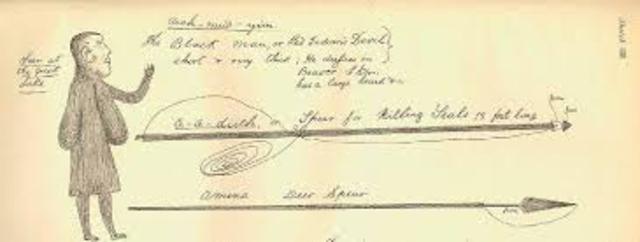 The Black Man, or Red Indian's Devil
short & very thick; He dresses in
Beaver Skin,
has a long beard &c
Seen at
the Great
Lake
a-a-duth, or Spear for Killing Seals feet long
Amina Deer Spear